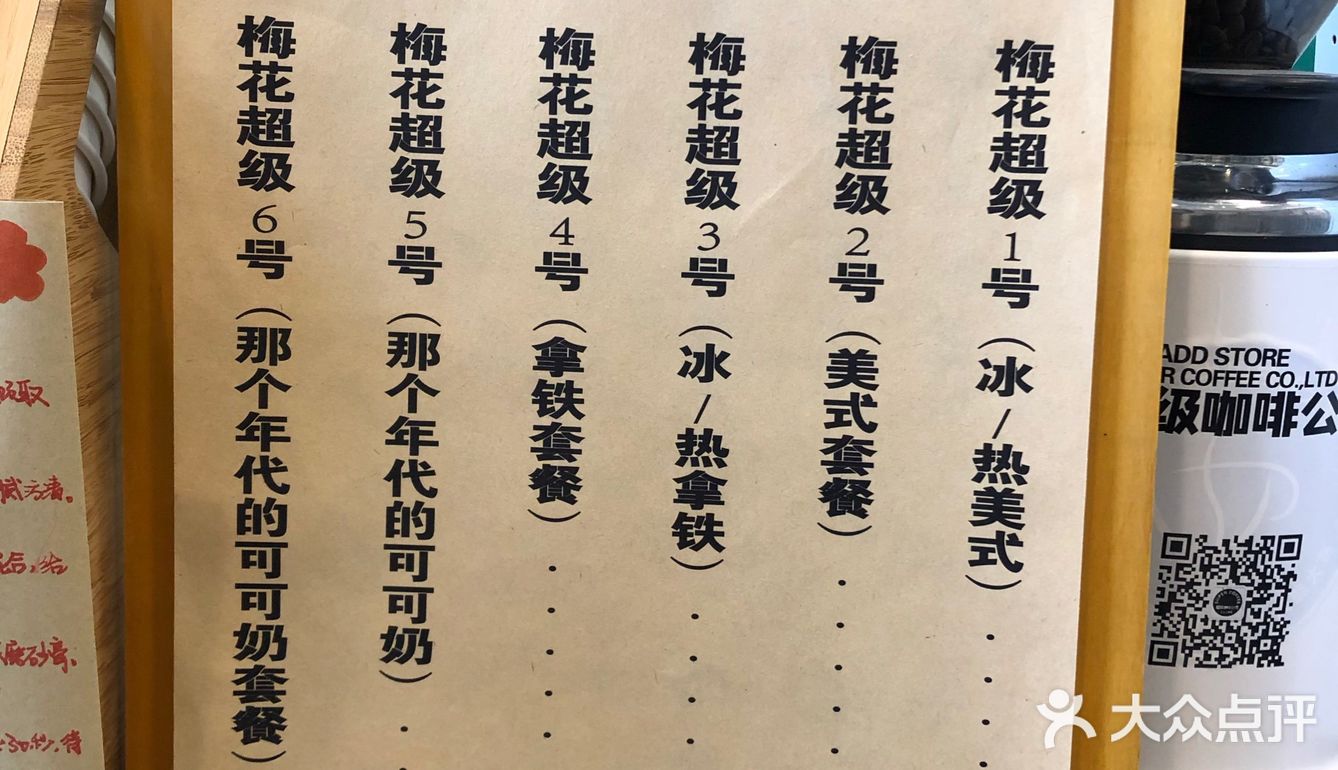 梅花超级1号（冰/热美式）....
梅花超级2号（美式套餐）.....
梅花超级3号（冰/热拿铁）....
梅花超级4号（拿铁套餐）.....
梅花超级5号（那个年代的可可奶）..
梅花超级6号（那个年代的可可奶套餐）
ADD STORE
R COFFEE CO.,LTD
级咖啡公
取
清。
给
磨砂膏。
30秒，待
大众点评